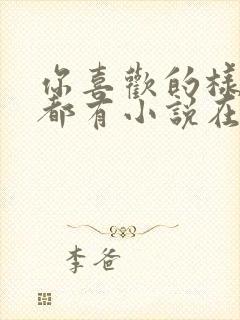 你喜歡的樣
都有小說在
李爸